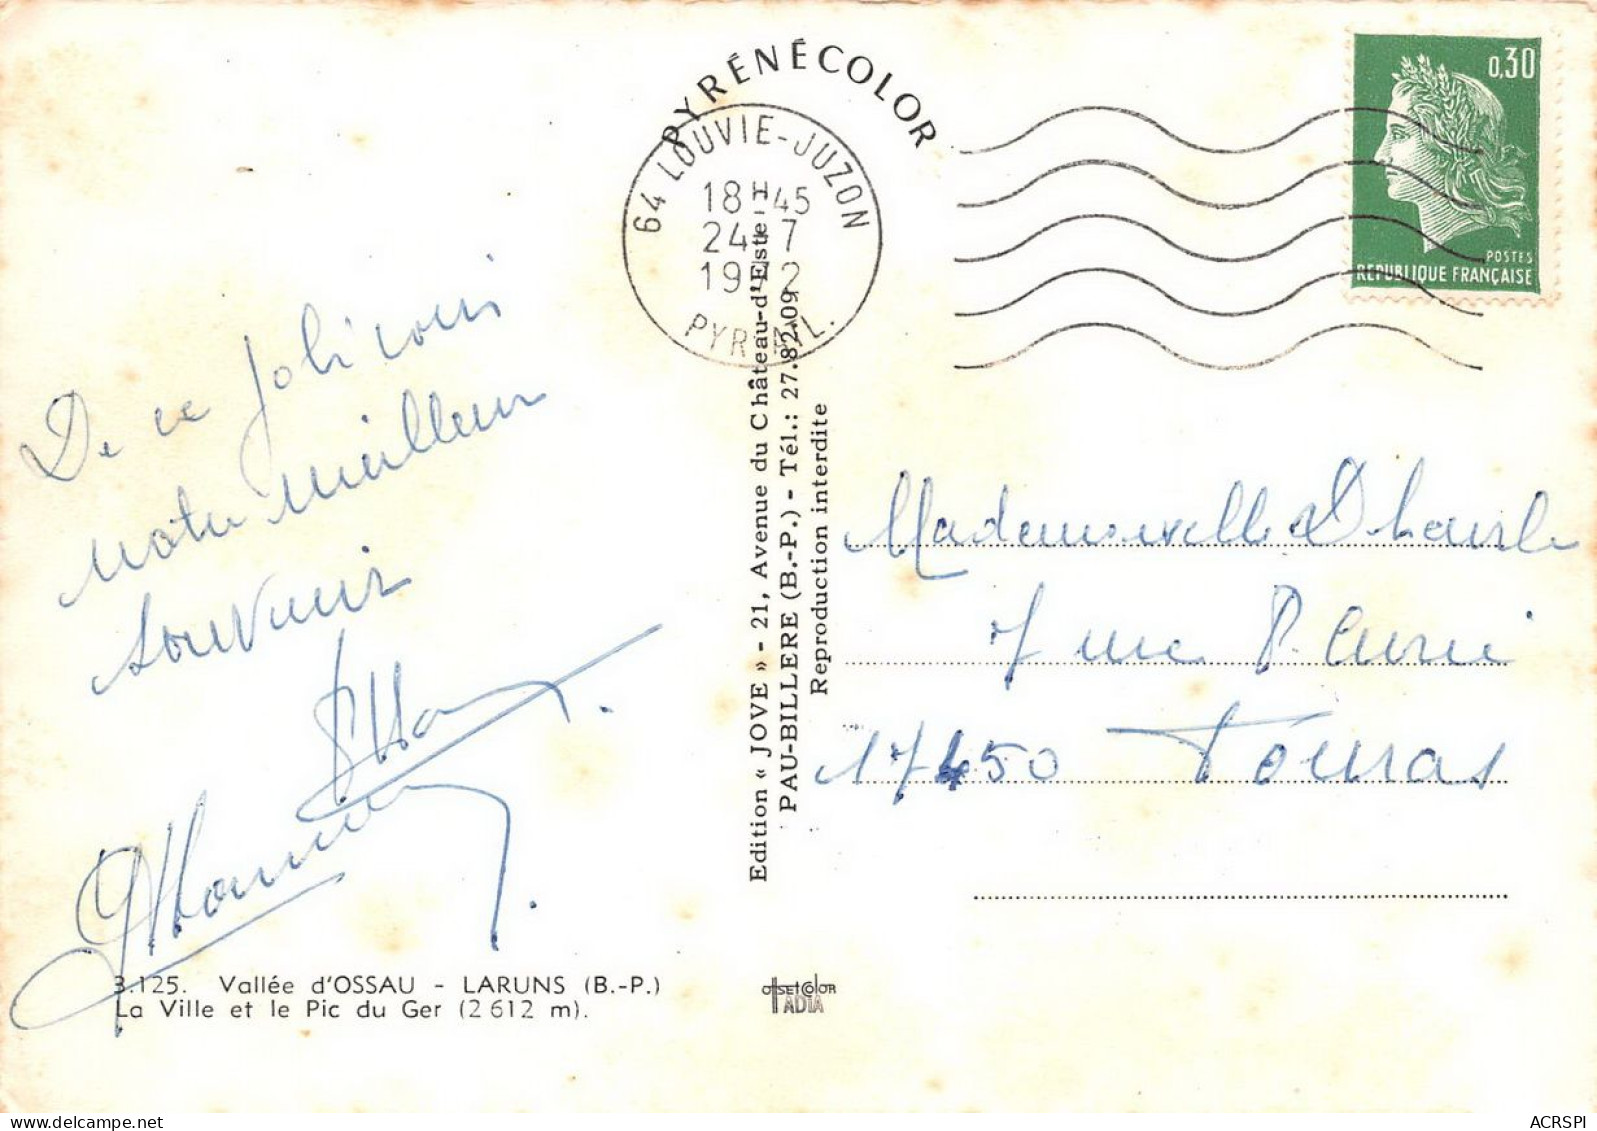 PYRÉNÉCOLOR
64 LOUVIE-JUZON
18H45
24-7
1972
PYR. ATL.
0,30
POSTES
REPUBLIQUE FRANÇAISE
De ce joli coin
notre meilleur
souvenir
Edition « JOVE » - 21, Avenue du Château-d'Este -
PAU-BILLERE (B.-P.) - Tél.: 27.82.09
Reproduction interdite
Mademoiselle
7 rue
17450 Fouras
3.125. Vallée d'OSSAU - LARUNS (B.-P.)
La Ville et le Pic du Ger (2 612 m).
OFFSET COLOR
IADIA
ACRSPI